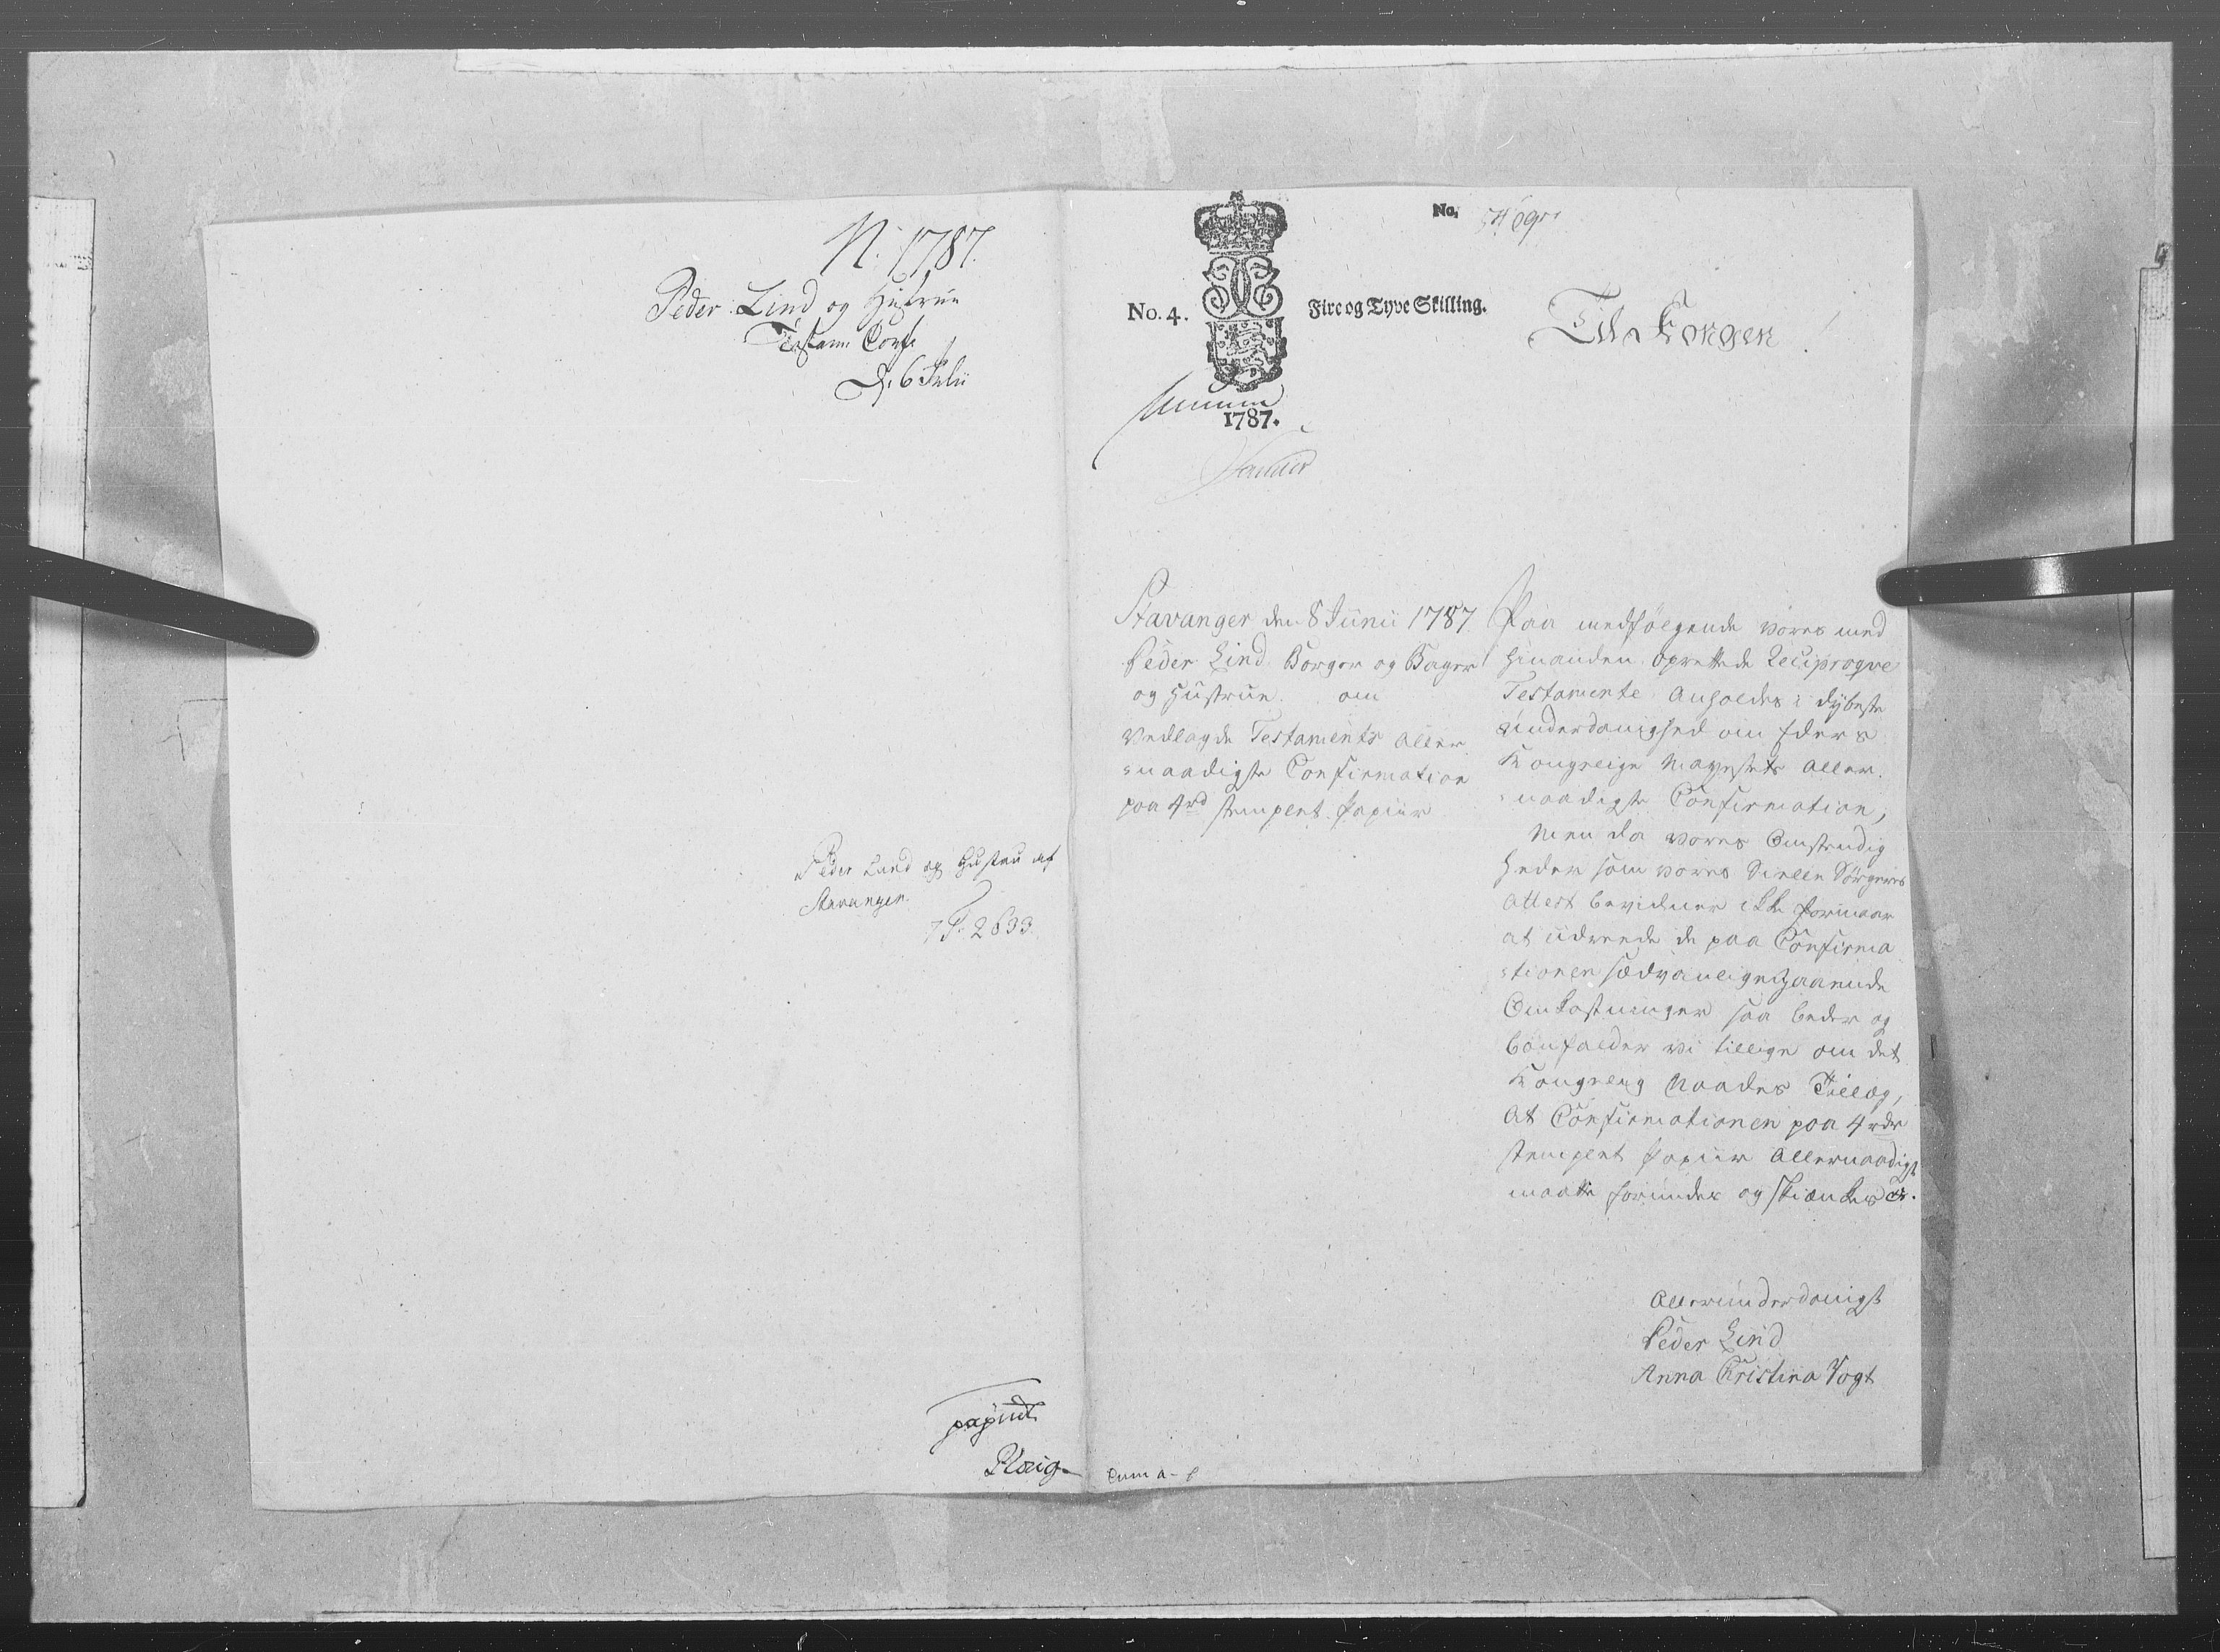 N. 1787.
Peder Lind og Hustrue
Testam: Conf:
D: 6 Julii
Peder Lund og Hustru af
Stavanger
2633
Plæig
No. 5409
No. 4.
Fire og Tyve Skilling.
Til Kongen!
1787.
Stavanger den 8 Junii 1787
Peder Lind Borger og Bager
og Hustrue om
vedlagde Testaments aller
=naadigste Confirmation
paa 4rd stemplet Papiir
Paa medfølgende vores med
hinanden oprettede Reciproqve
Testamente anholdes i dybeste
underdanighed om Eders
Kongelige Mayestets aller
=naadigste Confirmation,
Men da vores Omstendig
heder som vores Siæle Sørgeres
Attest bevidner ikke formaar
at udreede de paa Confirma
=tionen sædvanlige gaaende
Omkostninger saa beder og
bønfalder vi tillige om det
Kongelig Naades Tillæg,
At Confirmationen paa 4 rdr
stemplet Papiir Allernaadigst
maatte forundes og skienkes os.
Allerunderdanigst
Peder Lind
Anna Cristina Vogt